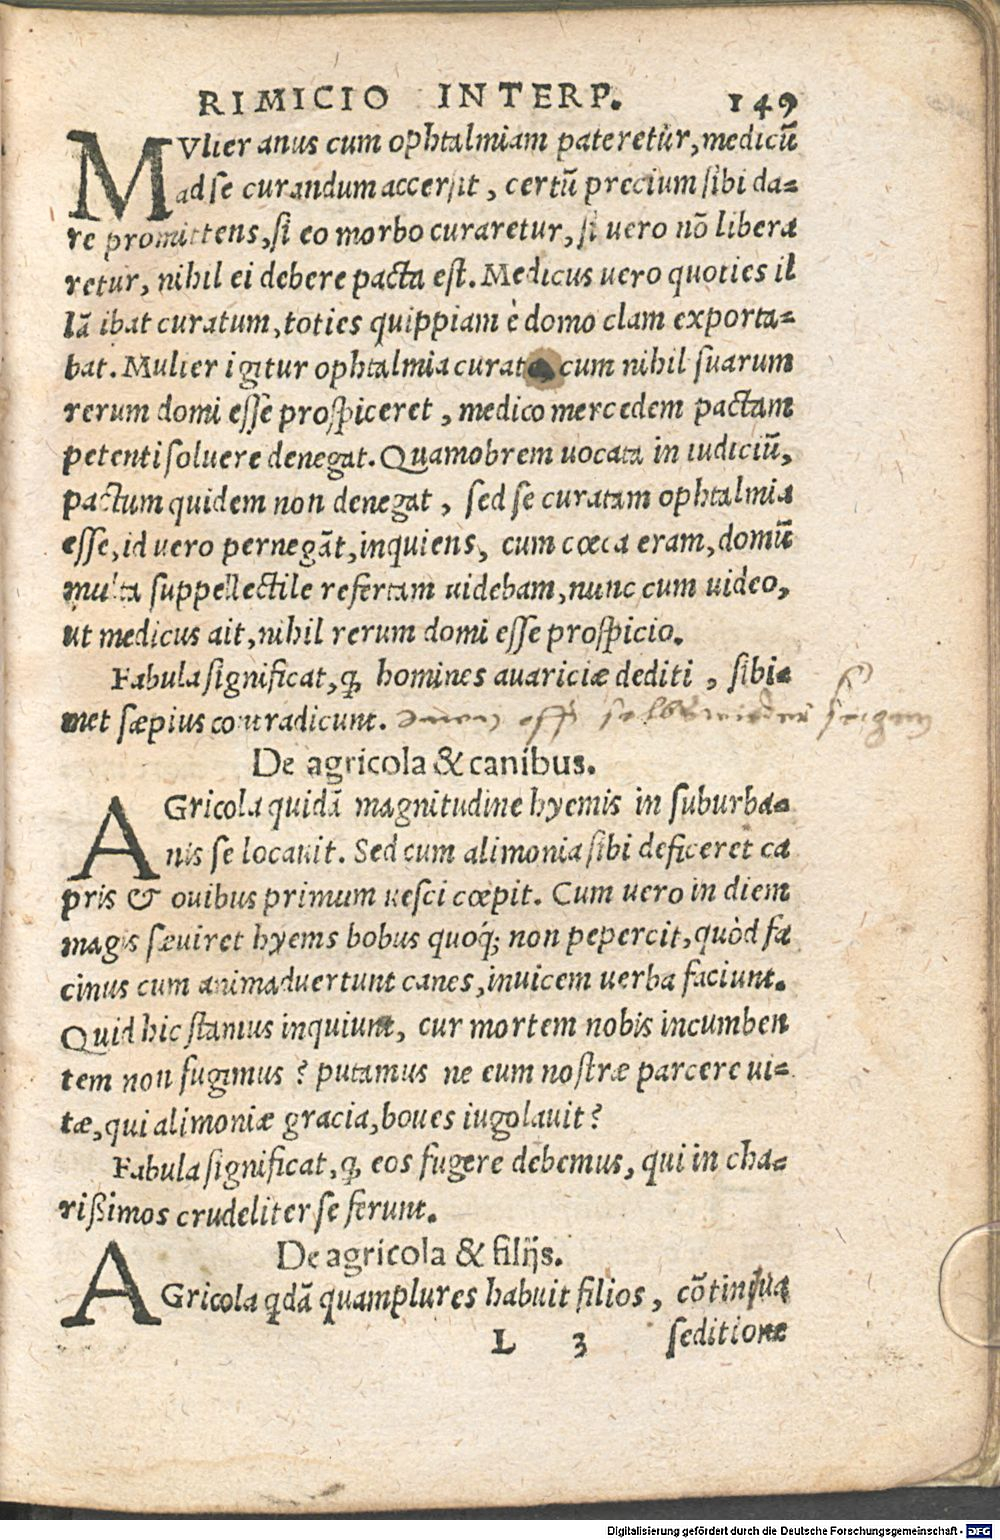 RIMICIO INTERP. 149
MVlier anus cum ophtalmiam pateretur, medicū
ad se curandum accersit, certū precium sibi da=
re promittens, si eo morbo curaretur, si uero nō libera
retur, nihil ei debere pacta est. Medicus uero quoties il
lā ibat curatum, toties quippiam è domo clam exporta=
bat. Mulier igitur ophtalmia curata, cum nihil suarum
rerum domi esse prospiceret, medico mercedem pactam
petenti soluere denegat. Quamobrem uocata in iudiciū,
pactum quidem non denegat, sed se curatam ophtalmia
esse, id uero pernegāt, inquiens, cum cœca eram, domū
multa suppellectile refertam uidebam, nunc cum uideo,
ut medicus ait, nihil rerum domi esse prospicio.
Fabula significat, ꝙ homines auariciæ dediti, sibi=
met sæpius contradicunt.
De agricola & canibus.
AGricola quidā magnitudine hyemis in suburba=
nis se locauit. Sed cum alimonia sibi deficeret ca
pris & ouibus primum uesci cœpit. Cum uero in diem
magis sæuiret hyems bobus quoq́; non pepercit, quòd fa
cinus cum animaduertunt canes, inuicem uerba faciunt.
Quid hic stamus inquiunt, cur mortem nobis incumben
tem non fugimus? putamus ne eum nostræ parcere ui=
tæ, qui alimoniæ gracia, boues iugolauit?
Fabula significat, ꝙ eos fugere debemus, qui in cha=
rißimos crudeliter se ferunt.
De agricola & filijs.
AGricola qdā quamplures habuit filios, cōtinua
L 3 seditione
Digitalisierung gefördert durch die Deutsche Forschungsgemeinschaft - DFG